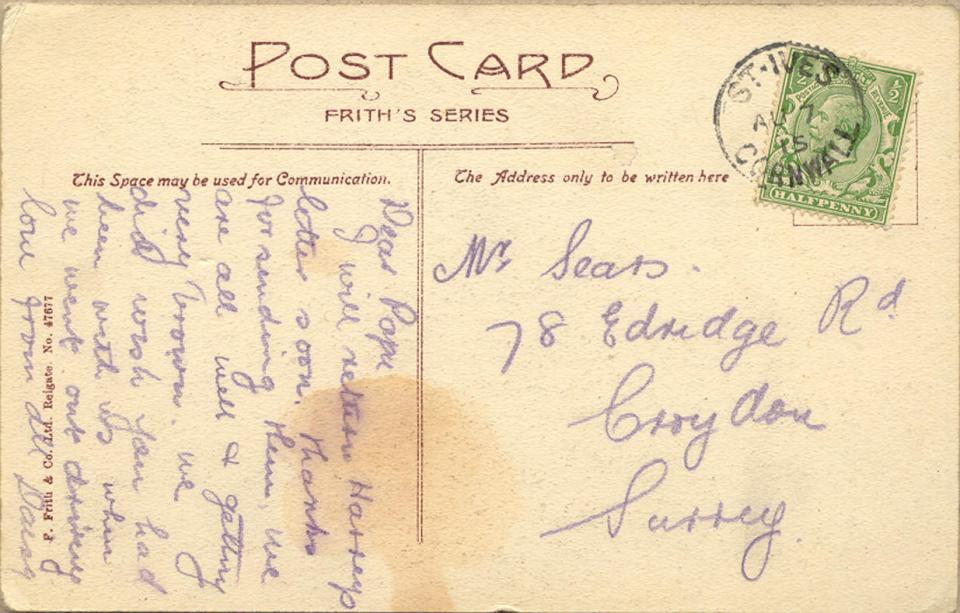 POST CARD
FRITH'S SERIES
This Space may be used for Communication.
The Address only to be written here
ST·IVES
AU 7
15
CORNWALL
½
HALFPENNY
Dear Pope
I will return Harreys
letter soon. thanks
for sending them, we
are all well & getting
very brown. we
did wish you had
been with us when
we went out driving
love from all Daisy
F. Frith & Co., Ltd. Reigate. No. 47677
Mr Sears.
78 Edridge Rd
Croydon
Surrey.